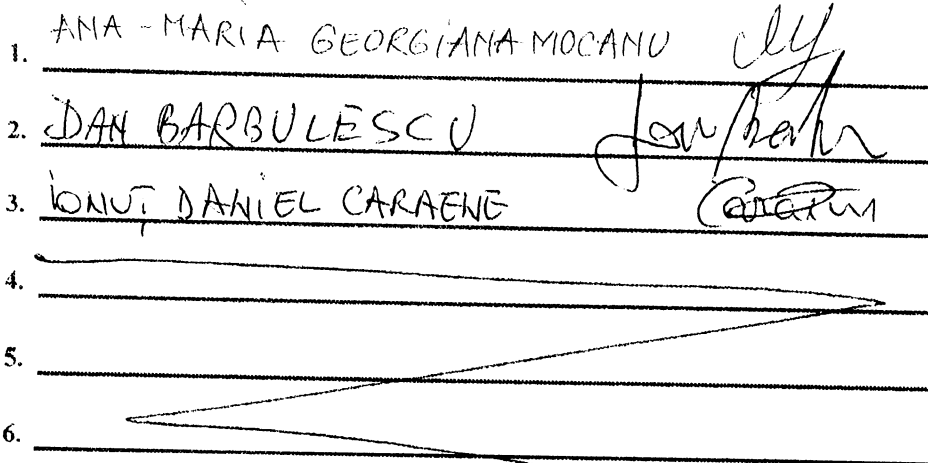 1. ANA-MARIA GEORGIANA MOCANU
2. DAN BARBULESCU
3. IONUȚ DANIEL CARAENE
4.
5.
6.